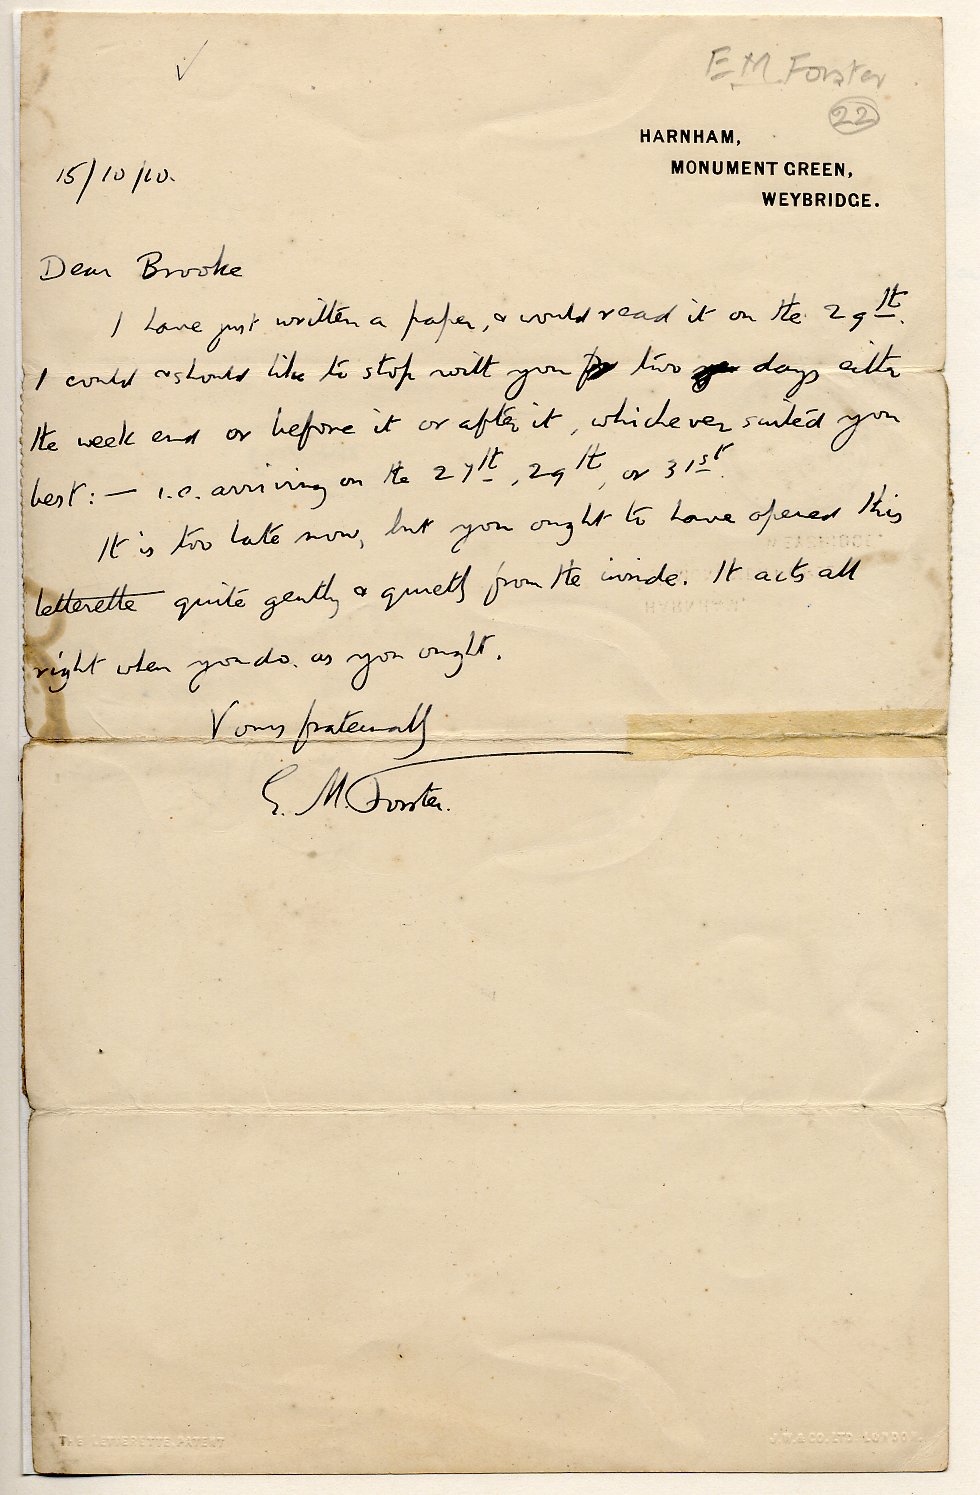 E. M. Forster
22
HARNHAM,
MONUMENT GREEN,
WEYBRIDGE.
15/10/10.
Dear Brooke
I have just written a paper, & would read it on the 29th.
I could & should like to stop with you for two days either
the week end or before it or after it, whichever suited you
best: — i.e. arriving on the 27th, 29th, or 31st.
It is too late now, but you ought to have opened this
letterette quite gently & quietly from the inside. It acts all
right when you do as you ought.
Yours fraternally
E. M. Forster.
THE LETTERETTE PATENT
J.W. & CO. LTD LONDON.